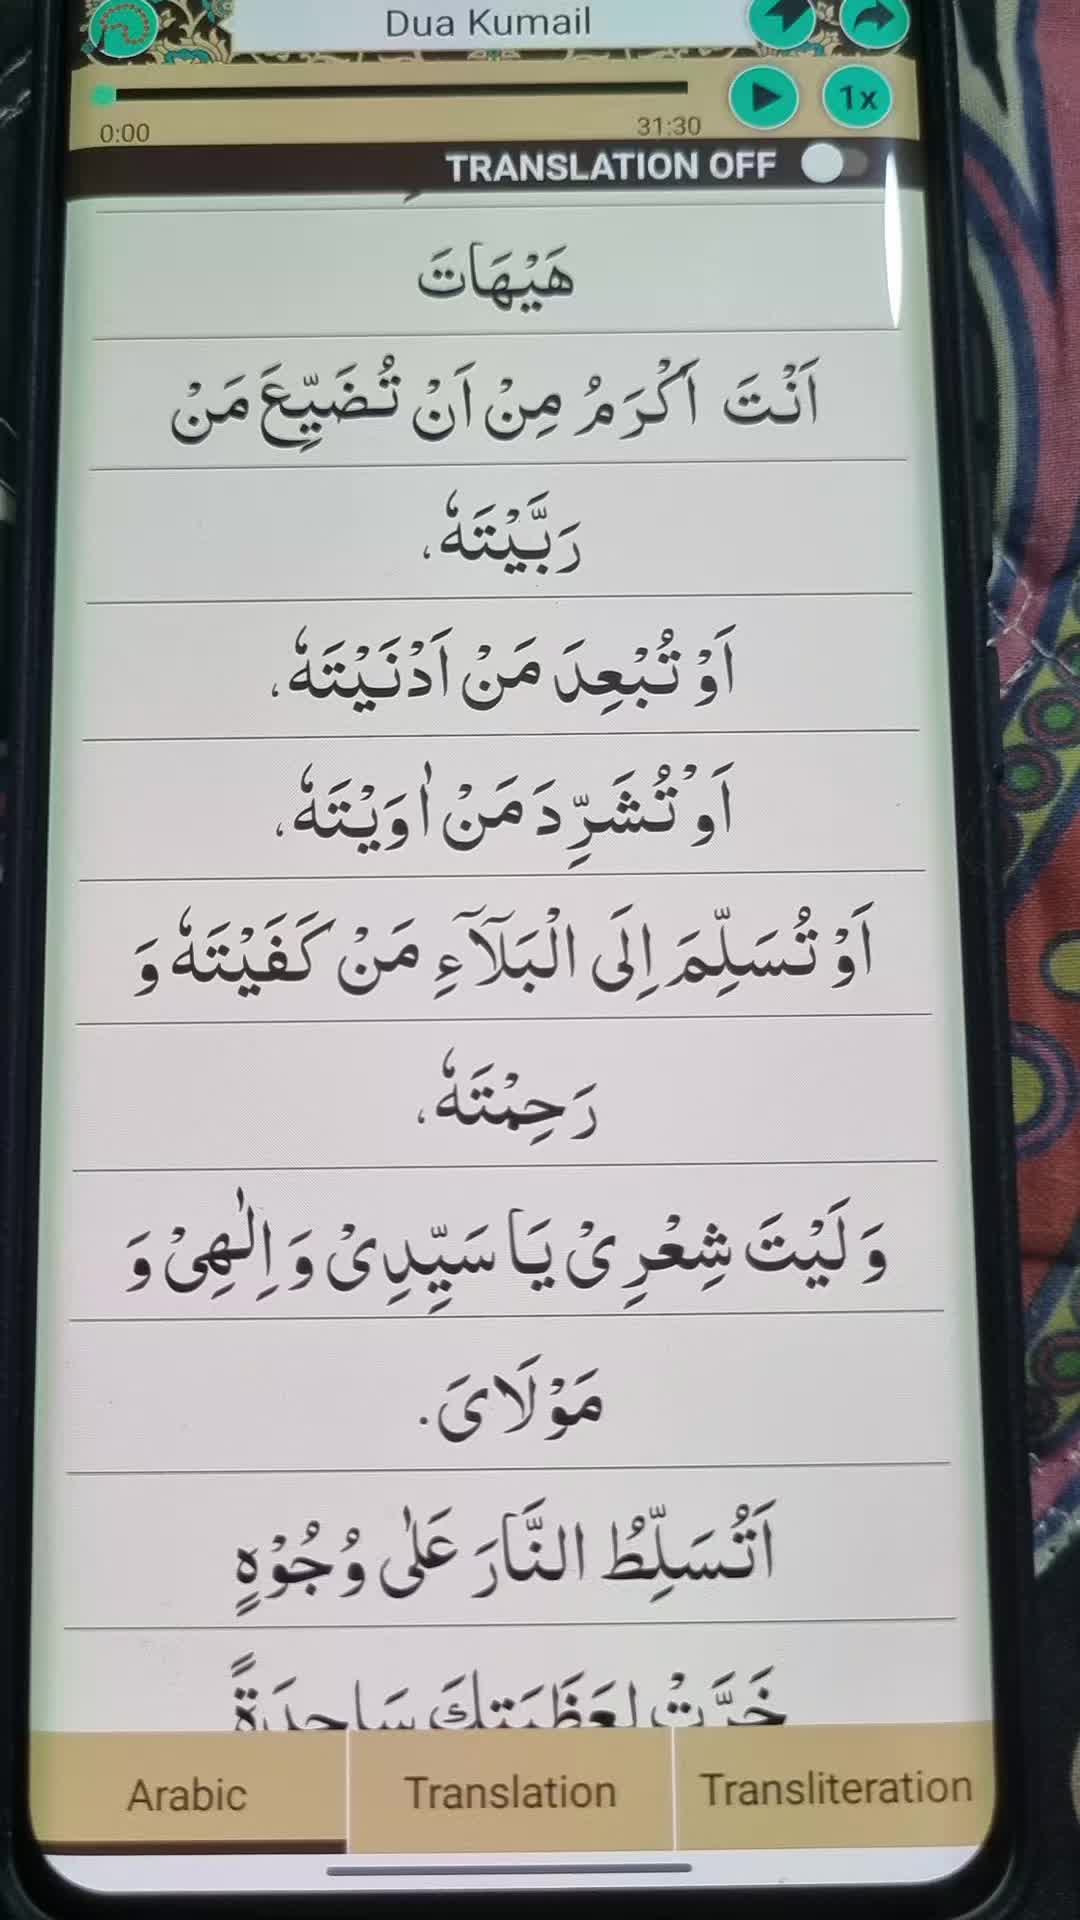 Dua Kumail
0:00
31:30
1x
TRANSLATION OFF
هَيْهَاتَ
اَنْتَ اَكْرَمُ مِنْ اَنْ تُضَيِّعَ مَنْ
رَبَّيْتَهٗ،
اَوْ تُبْعِدَ مَنْ اَدْنَيْتَهٗ،
اَوْ تُشَرِّدَ مَنْ اٰوَيْتَهٗ،
اَوْ تُسَلِّمَ اِلَى الْبَلَآءِ مَنْ كَفَيْتَهٗ وَ
رَحِمْتَهٗ،
وَ لَيْتَ شِعْرِىْ يَا سَيِّدِىْ وَ اِلٰهِىْ وَ
مَوْلَاىَ.
اَتُسَلِّطُ النَّارَ عَلٰى وُجُوْهٍ
خَرَّتْ لِعَظَمَتِكَ سَاجِدَةً
Arabic
Translation
Transliteration